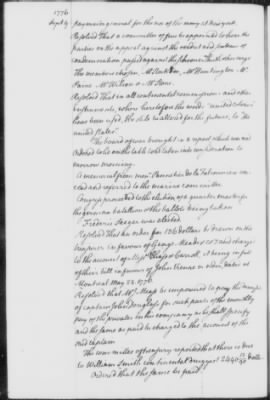 1776
Sept. 9
paymaster general for the use of the army at New York.
Resolved That a committee of five be appointed to hear the
parties on the appeal against the verdict and sentence of
condemnation passed against the schooner
The members chosen, Mr Huntington, Mr
Paine, Mr Wilson &
Resolved That in all continental commissions and other
instruments, where heretofore the words "united colonies"
have been used, the stile be altered for the future to "the
united states".
The board of war brought in a report which was read
Ordered to lie on the table to be taken into consideration to
morrow morning.
A memorial from mons was
read and referred to the marine committee
Congress proceeded to the election of a quarter master for
the german battalion, the ballots being taken
Frederic was elected.
Resolved That an order for 136 Dollars be drawn on the
treasurer in favour of George Measam and charge
to the account of Mess. Chase & Carrol, it being in full
of their bill in favour of John dated at
Montreal May 22. 1776.
Resolved That Mr. Heap be empowered to pay the
of captain John for such parts of the monthly
pay of the privates in his company as he shall specify
and the same so paid be charged to the account of the
said captain
The committee of treasury reported that there is due
to William Smith continental druggist Dollars
Ordered that the same be paid.